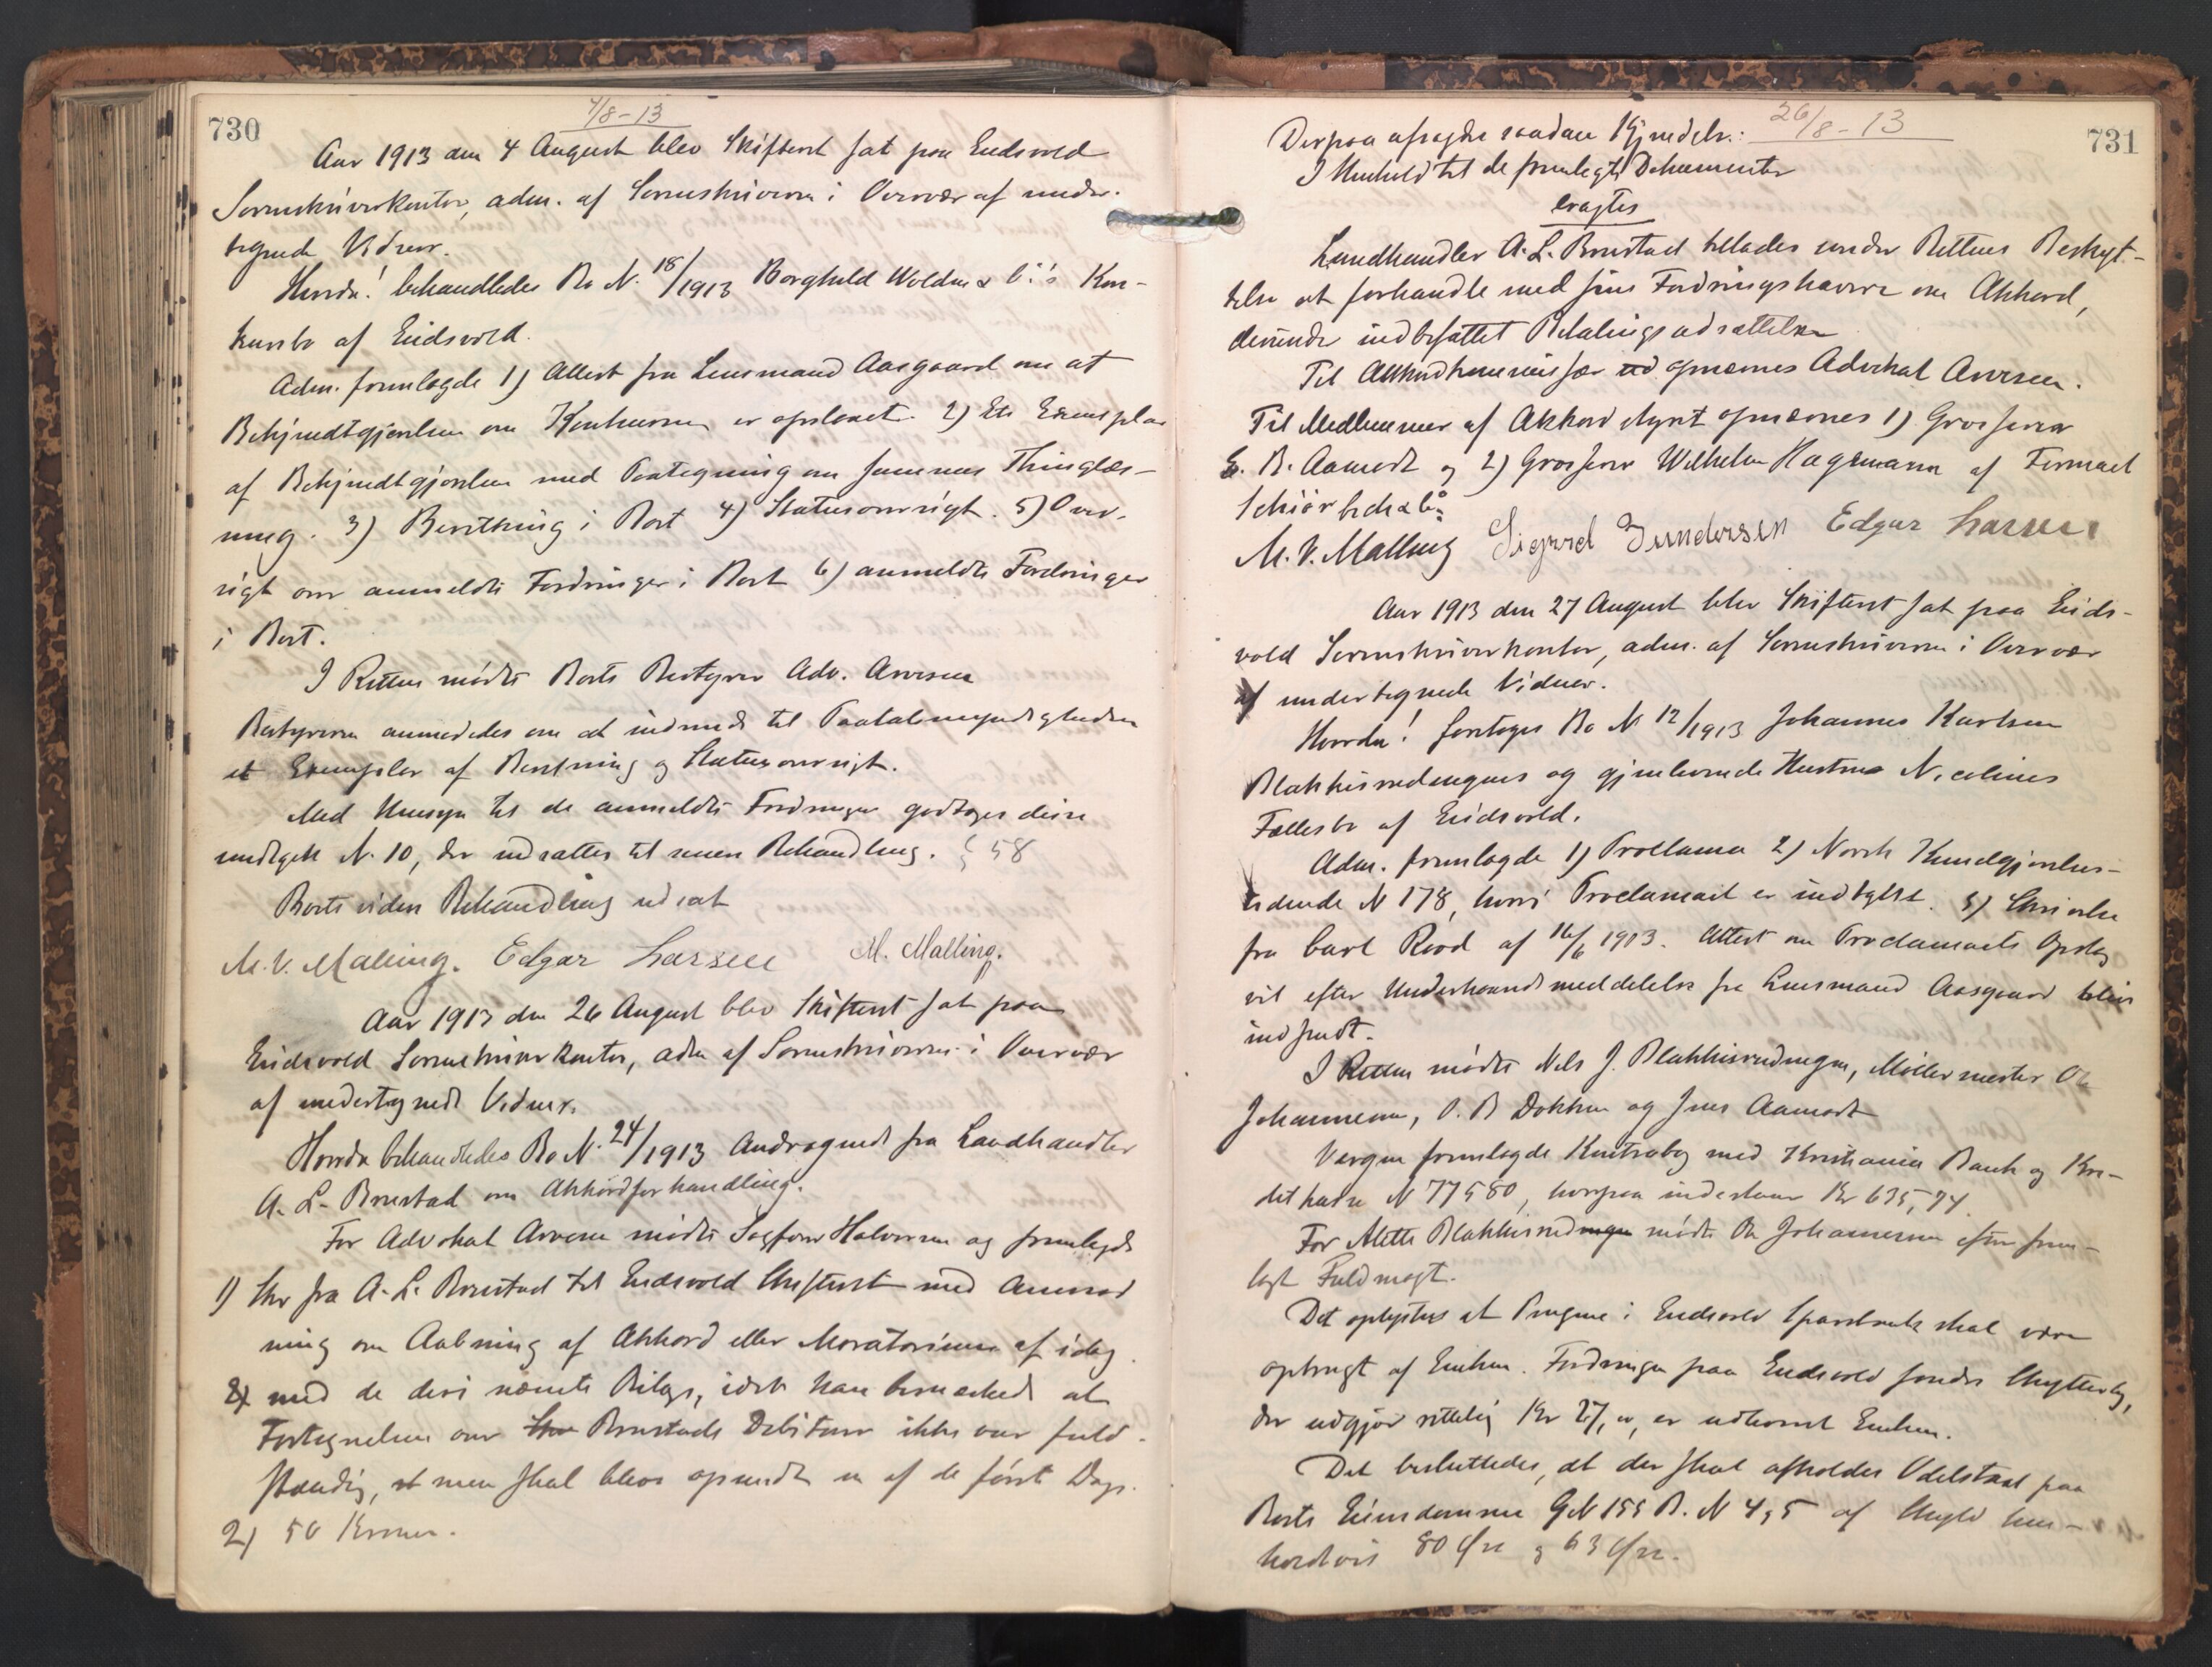 730
4/8-13
Aar 1913 den 4 August blev Skifteret sat paa Eidsvold
Sorenskriverkontor, adm. af Sorenskriveren i Overvær af under-
tegnede Vidner.
Hvorda! behandledes Bo N. 18/1913 Borghild Woldens & Co's Kon-
kursbo af Eidsvold.
Adm. fremlagde 1) Attest fra Lensmand Aasgaard om at
Bekjendtgjørelsen om Konkursen er opslaaet. 2) Et Exemplar
af Bekjendtgjørelsen med Paategning om sammes Thinglæs-
ning. 3) Beretning i Boet 4) Statusoversigt. 5) Over-
sigt over anmeldte Fordringer i Boet 6) anmeldte Fordringer
i Boet.
I Retten mødte Boets Bestyrer Adv. Arvesen
Bestyreren anmodedes om at indsende til Paatalemyndigheden
et Exemplar af Beretning og Statusoversigt.
Med Hensyn til de anmeldte Fordringer godtages disse
undtagen N. 10, der udsættes til senere Behandling. § 58
Boets videre Behandling udsat
M.V. Malling. Edgar Larsen M. Malling.
Aar 1913 den 26 August blev Skifteret sat paa
Eidsvold Sorenskriverkontor, adm af Sorenskriveren i Overvær
af undertegnede Vidner.
Hvorda behandledes Bo N. 24/1913 Andragende fra Landhandler
A. L. Brustad om Akkordforhandling.
For Advokat Arvesen mødte Sagfører Halvorsen og fremlagde
1) Skr fra A. L. Brustad til Eidsvold Skifteret med Anmod
ning om Aabning af Akkord eller Moratorium af idag.
2) med de deri nævnte Bilag, idet han bemærkede at
Fortegnelsen over Brustads Debitorer ikke var fuld-
stændig, men skal blive opsendt en af de første Dage.
2) 50 Kroner.
731
26/8-13
Derpaa afsagdes saadan Kjendelse:
I Henhold til de fremlagte Dokumenter
eragtes
Landhandler A. L. Brustad tillades under Rettens Beskyt-
telse at forhandle med sine Fordringshavere om Akkord,
derunder indbefattet Betalingsudsættelse
Til Akkordkommissær opnævnes Advokat Arvesen.
Til Medlemmer af Akkordstyret opnævnes 1) Grosserer
E. B. Aamodt og 2) Grosserer Wilhelm Hagemann af Firmaet
Schiørbeck & Co.
M. V. Malling Sigurd Gundersen Edgar Larsen
Aar 1913 den 27 August blev Skifteret sat paa Eids-
vold Sorenskriverkontor, adm. af Sorenskriveren i Overvær
af undertegnede Vidner.
Hvorda! foretoges Bo N 12/1913 Johannes Karlsen
Blakkisrudengens og gjenlevende Hustru Nicolines
Fællesbo af Eidsvold.
Adm. fremlagde 1) Proclama 2) Norsk Kundgjørelses-
tidende N 178, hvori Proclamaet er indtaget. 3) Skrivelse
fra Carl Rood af 16/6 1913. Attest om Proclamaets Opslag
vil efter Underhaandsmeddelelse fra Lensmand Aasgaard blive
indsendt.
I Retten mødte Nils J. Blakkisrudengen, Møllermester Ole
Johannesen, O. B Dokken og Jens Aamodt
Værgen fremlagde Kontrabog med Kristiania Bank og Kre-
ditkasse N 77580, hvorpaa indestaar Kr 635,74.
For Alette Blakkisrudengen mødte Ole Johannesen efter frem-
lagt Fuldmagt.
Det oplystes at Pengene i Eidsvold Sparebank skal være
opbrugt af Enken. Fordringen paa Eidsvold søndre Skytterlag,
der udgjør rettelig Kr 27,00, er udbetalt Enken.
Det besluttedes, at der skal afholdes Odelstaxt paa
Boets Eiendomme G N 155 B. N 4, 5 af Skyld hen-
holdsvis 80 Øre og 63 Øre.